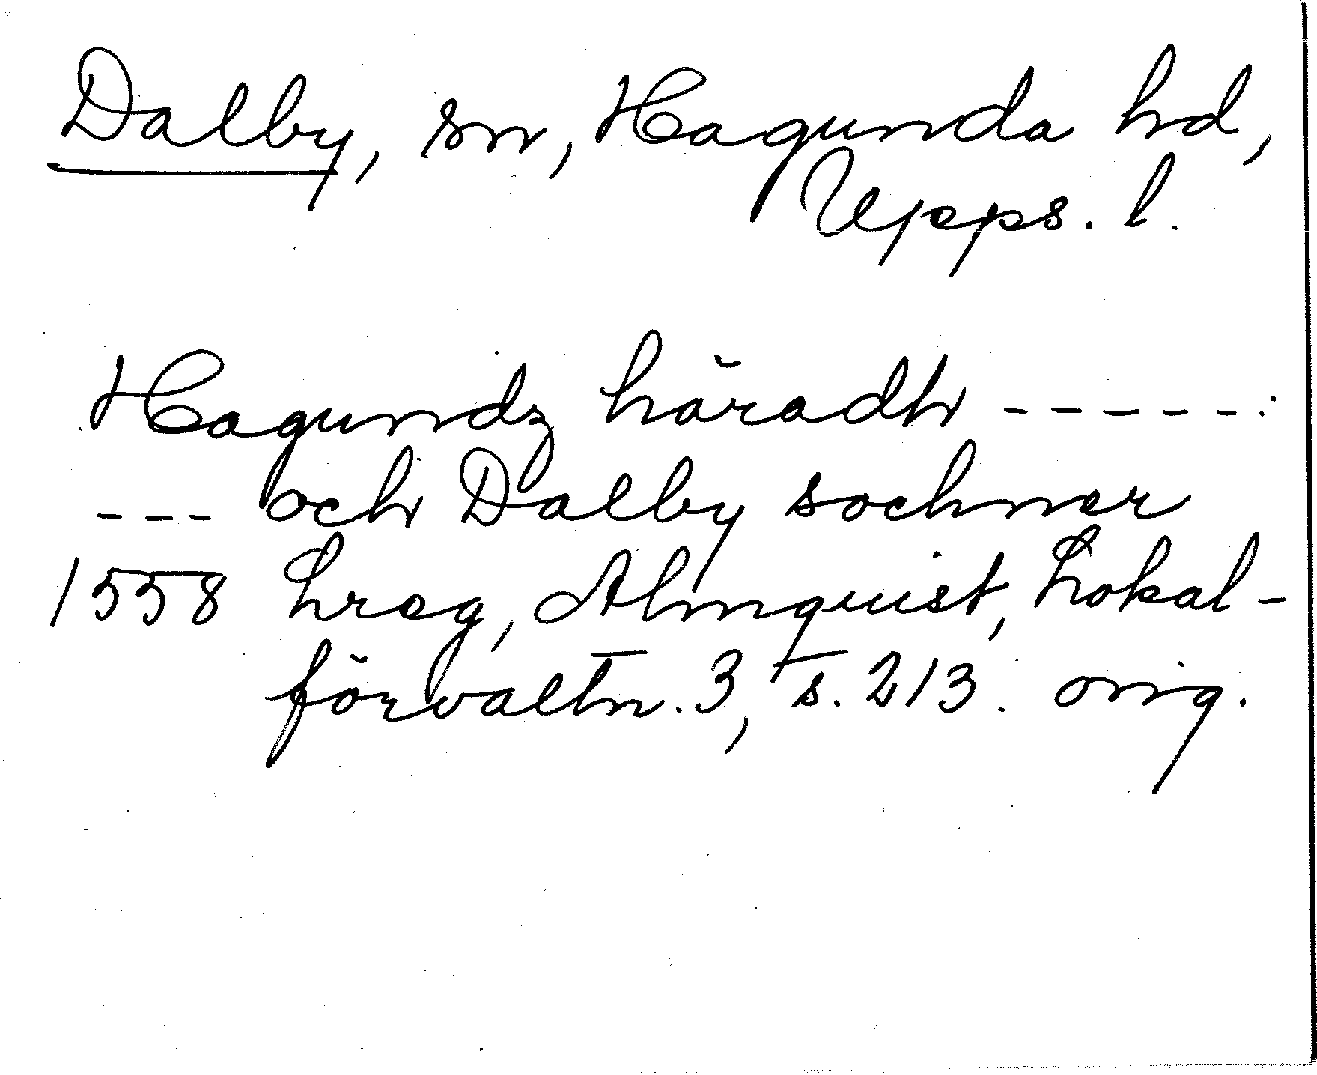 Dalby, sn, Hagunda hd,
Upps. l.
Hagundz häradh - - - - -
- - - och Dalby sochner
1558 hreg, Almquist, Lokal-
förvaltn. 3, s. 213. orig.